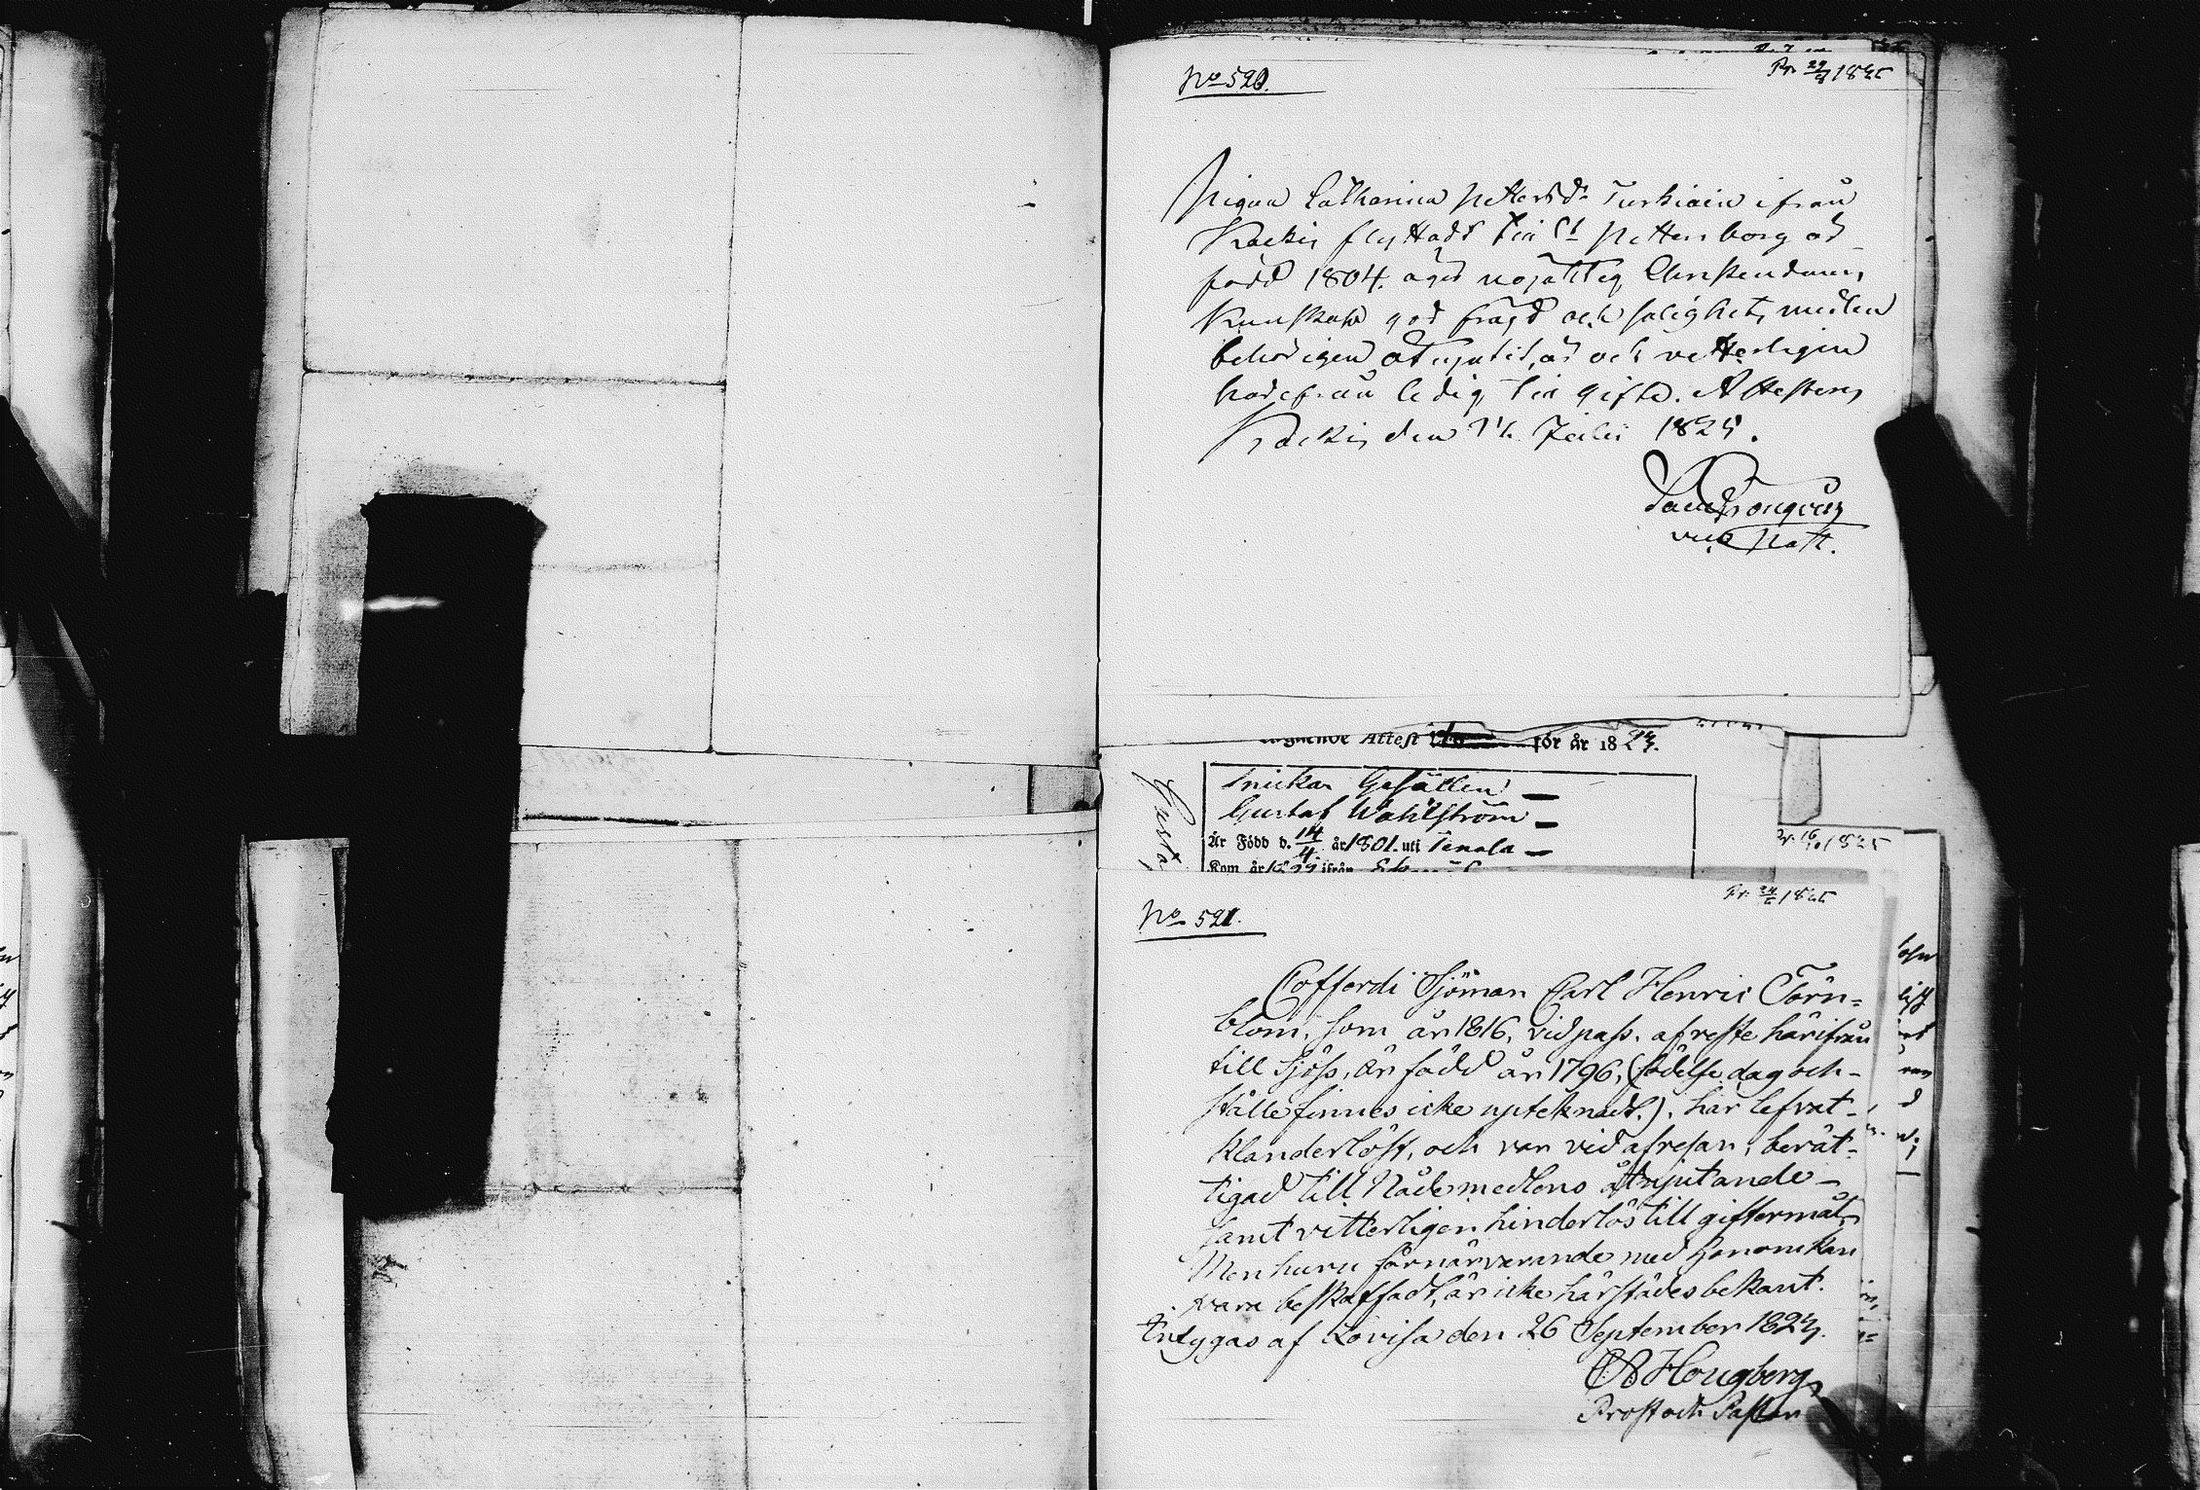 No 520.
Pr. 29/8 1825
Pigan Catharina Pettersdr Turkiain ifrån
Kaekis flyttad till St Pettersborg är
född 1804. äger nöjaktig Christendoms
Kunskap god frägd och salighets medlen
behörigen åtnjutit, är och vetterligen
härifrån ledig till gifte. Attesteras
Kaekis den Julii 1825.
vice Past.
Attest för år 182
Gusta
Snickar Gesällen
Gustaf Wahlström
Är Född d. 14/4 år 1801. uti Tenala
Kom år ifrån
Pr. 16/ 1825
No 521.
Pr. 1825
Cofferdi Sjöman Carl Henric Törn=
blom, som år 1816, vid pass. afreste härifrån
till Sjöss, är född år 1796, (födelse dag och
ställe finnes icke upteknadt.). har lefvat
klanderlöst, och var vid afresan, berät-
tigad till Nådemedlens åtnjutande
samt vitterligen hinderlös till giftermål,
Men huru förnärvarande med honom kan
vara beskaffadt, är icke härstädes bekant.
Intygas af Lovisa den 26 September 182
Hougberg
Prost och Pastor